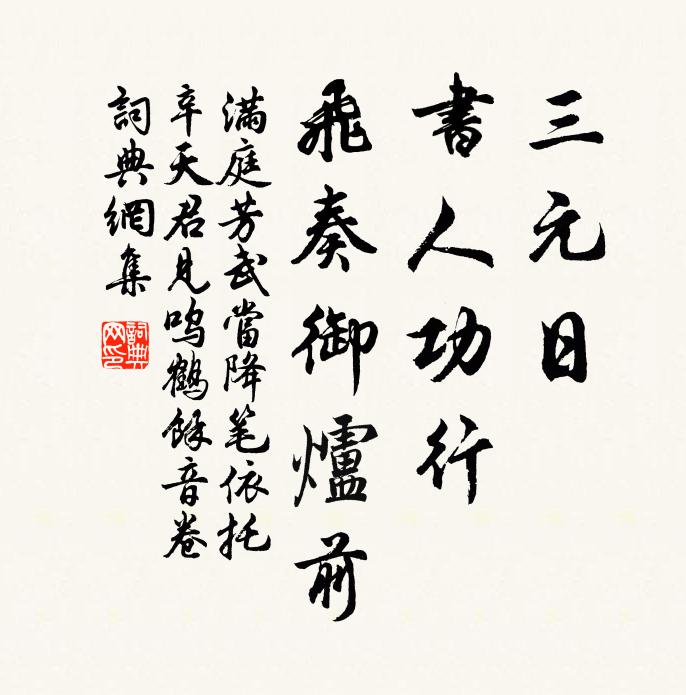 三元日
書人功行
飛奏御爐前
滿庭芳武當降笔依托
辛天君見鸣鶴餘音卷
詞典網集
詞典網印